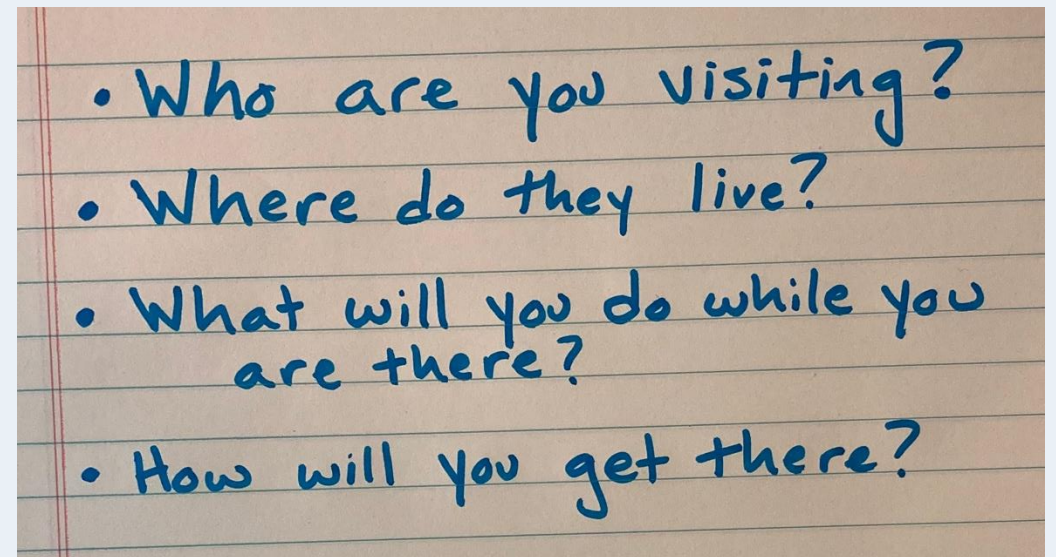 • Who are you visiting?
• Where do they live?
• What will you do while you
are there?
• How will you get there?